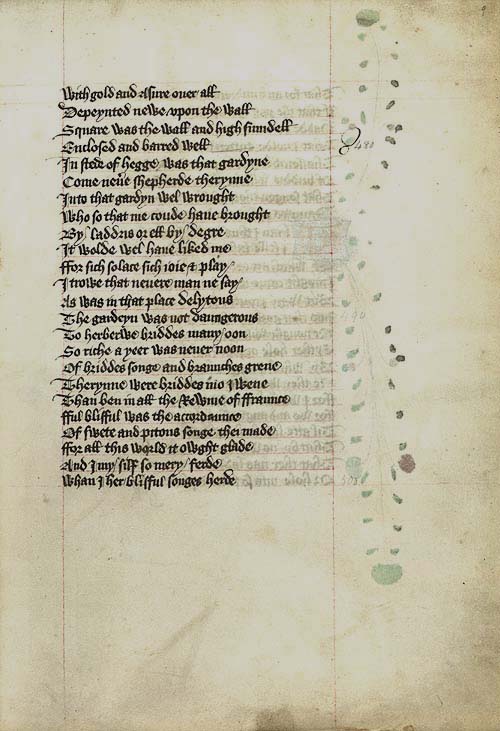 With gold and Asure ouer all
Depeynted newe vpon the wall
Square was the wall and high sumdell
Enclosed and barred well
In stede of hegge was that gardyne
Come neuere shepherde therynne
Into that gardyn wel wrought
Who so that me coude haue brought
By laddris or ell by degre
It wolde wel haue liked me
ffor sich solace sich ioie & play
I trowe that neuere man ne say
As was in that place delytous
The gardeyn was not daungerous
To herberwe briddes many oon
So riche a yeer was neuer noon
Of briddes songe and braunches grene
Therynne were briddes mo I wene
Than ben in all the Rewme of ffraunce
fful blisful was the accordaunce
Of swete and pitous songe thei made
ffor all this world it owght glade
And I my silf so mery ferde
Whan I her blisful songes herde
480
490